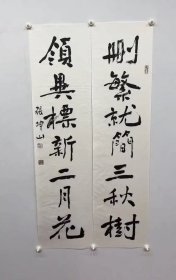 删繁就簡三秋樹
領異標新二月花